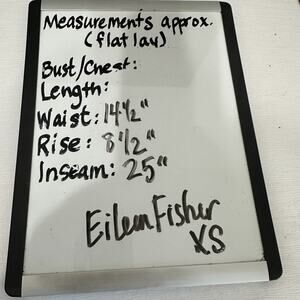 Measurements approx.
(flat lay)
Bust/Chest:
Length:
Waist: 14 1/2"
Rise: 8 1/2"
Inseam: 25"
Eileen Fisher
XS